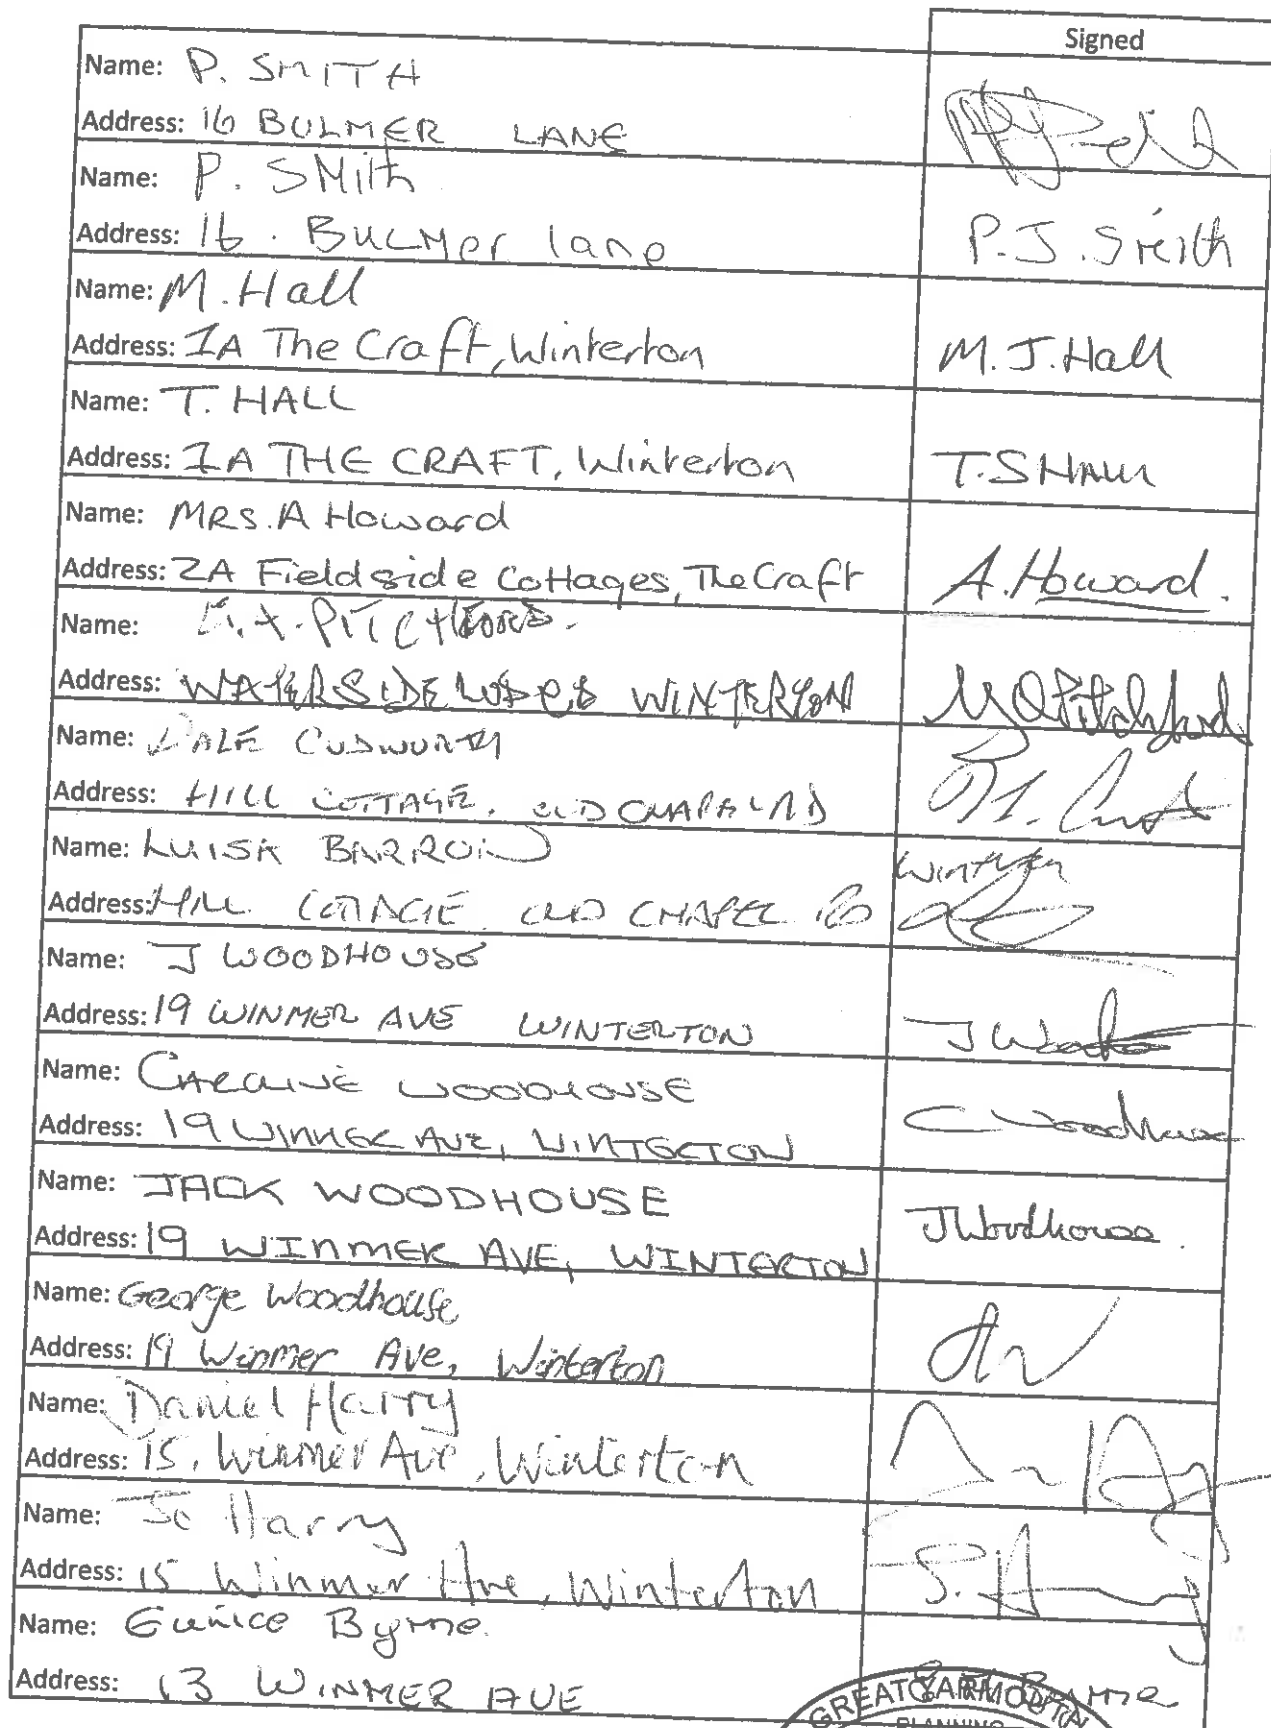 Signed
Name: P. SMITH
Address: 16 BULMER LANE
Name: P. SMith
Address: 16. BULMer lane P.J. Smith
Name: M. Hall
Address: 1A The Craft, Winterton M.J. Hall
Name: T. HALL
Address: 1A THE CRAFT, Winterton T.S Hall
Name: MRS. A Howard
Address: 2A Fieldside Cottages, The Craft A. Howard.
Name: PITCHFORD.
Address: WATERSIDE WINTERTON Pitchford
Name: DALE CUDWORTH
Address: HILL COTTAGE, OLD CHAPEL RD
Name: LUISA BARRON
Address: HILL COTTAGE OLD CHAPEL RD Winterton
Name: J WOODHOUSE
Address: 19 WINMER AVE WINTERTON J Woodhouse
Name: CAROLINE WOODHOUSE
Address: 19 WINMER AVE, WINTERTON C Woodhouse
Name: JACK WOODHOUSE
Address: 19 WINMER AVE, WINTERTON JWoodhouse.
Name: George Woodhouse
Address: 19 Winmer Ave, Winterton
Name: Daniel Harry
Address: 15, Winmer Ave, Winterton
Name: Jo Harry
Address: 15 Winmer Ave, Winterton
Name: Eunice Byrne.
Address: 13 WINMER AVE Byrne
GREAT YARMOUTH
PLANNING